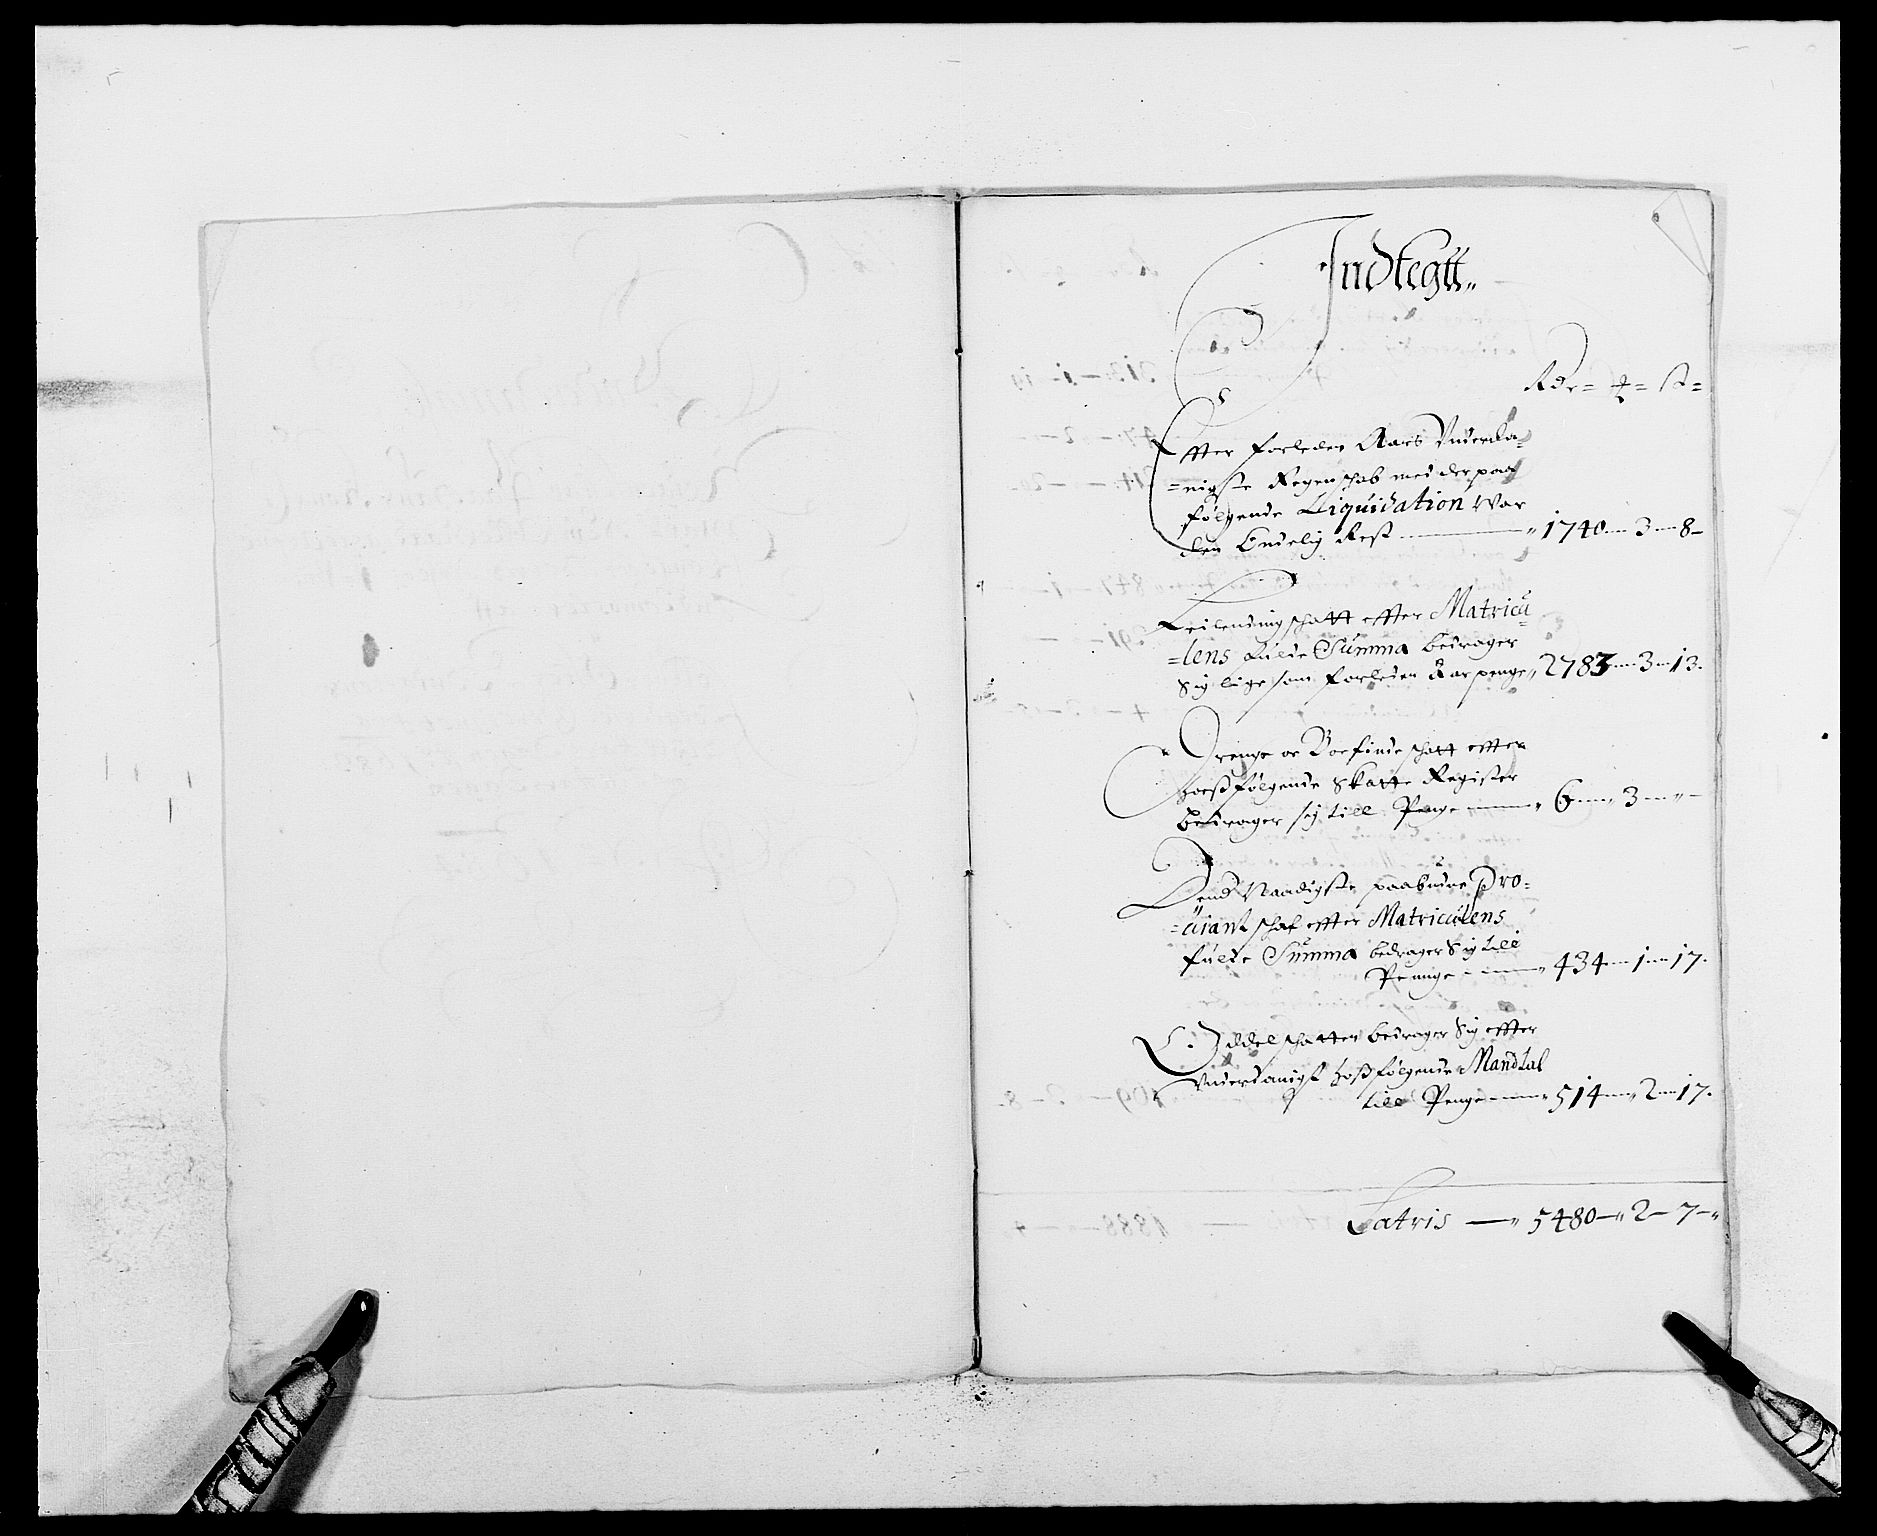 Indtegtt„
Rdr= ℔= ß=
Effter forleden Aars Underda=
=nigste Regenschab med der paa
følgende Liquidation War
den Endelig Rest — „ 1740 — 3 — 8 –
Leilendingschatt effter Matricu=
=lens fulde Summa bedrager
Sig liige som forleden Aar penge „ 2783 — 3 — 13.
Drenge oc Boesinde schatt effter
hosfølgende Skatte Register
bedrager sig till Penge — „ 6 — „ 3 — „ –
Dend Naadigste paabudne Pro=
=uiant schat effter Matriculens
fulde Summa bedrager Sig till
Penge — „ 434 — 1 — 17.
Oddelschatten bedrager Sig effter
Underdanigst hosfølgende Mandtal
till Penge — „ 514 — „ 2 — 17.
Latris — „ 5480 — „ 2 — 7 – „